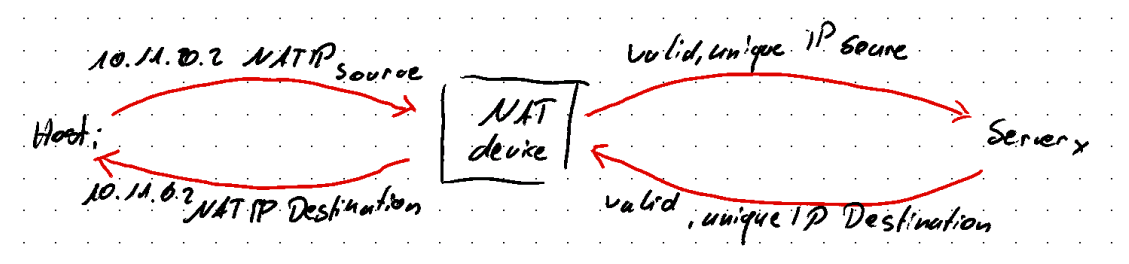 10.11.0.2 NAT IP Source
valid, unique IP Source
Host i
NAT
device
Server x
10.11.0.2 NAT IP Destination
valid, unique IP Destination